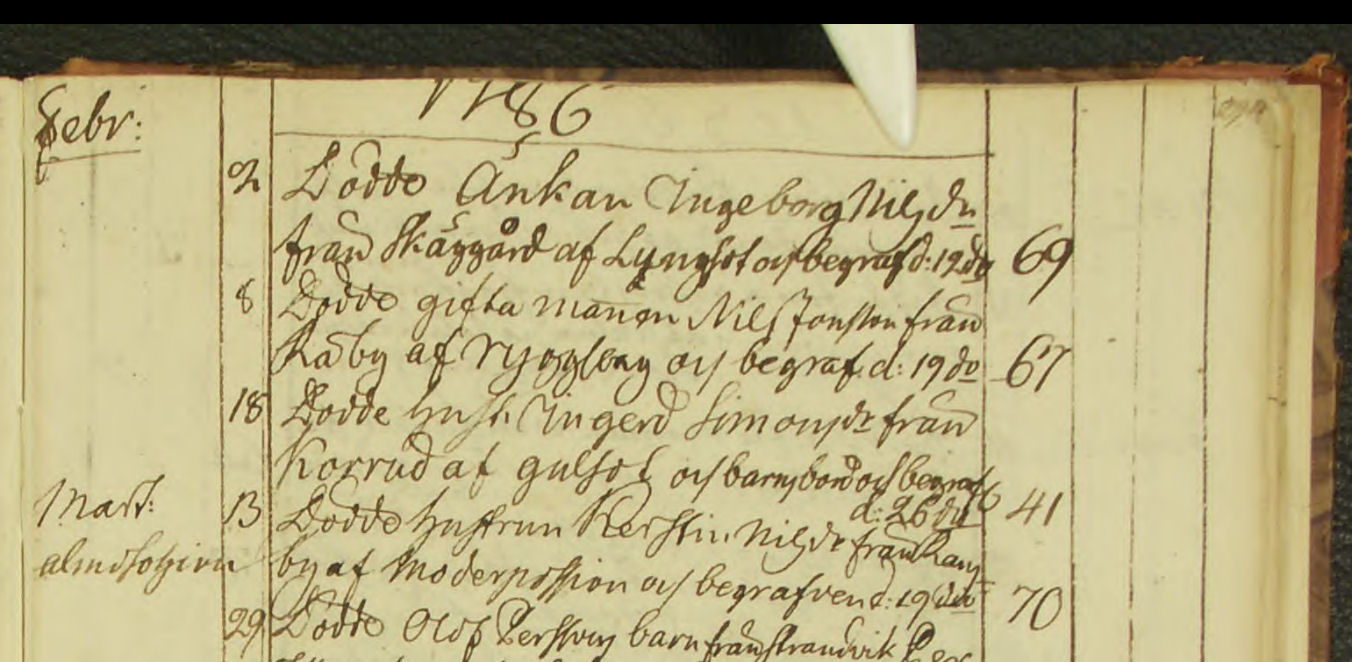 1786
Febr:
2 Dödde Änkan Ingeborg Nilsdr
från Skäggård af Lungsot och begraf d: 19 do 69
8 Dödde gifta mannen Nils Jonsson från
Råby af ryggvärk och begraf. d: 19 do 67
18 Dödde hust. Ingerd Simonsdr från
Korrud af gulsot och barnsbörd och begraf
d: 26 do 41
Mart: 13 Dödde hustrun Kerstin Nilsdr från
by af Moderpassion och begrafven d: 19 do 70
29 Dödde Olof Perssons barn från Strandvik Per